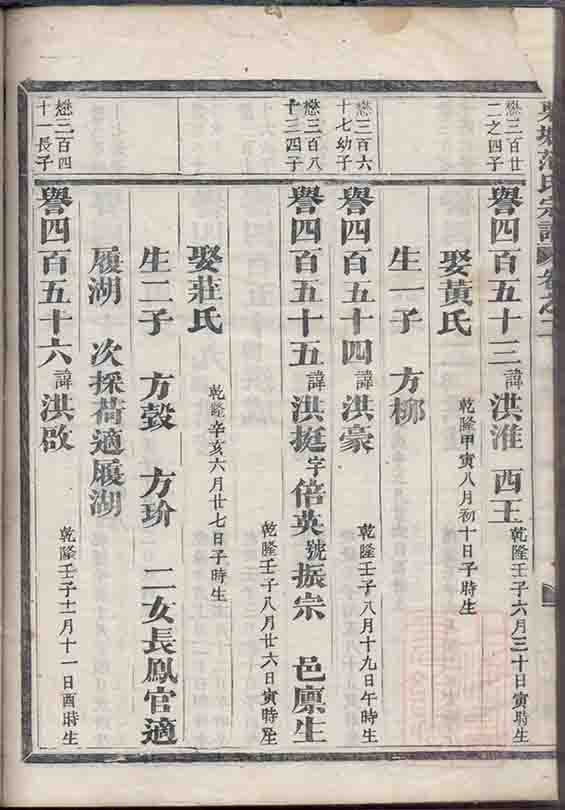 氏宗譜 卷之二
懋三百廿
二之四子
譽四百五十三 諱 洪淮 西王 乾隆壬子六月三十日寅時生
娶黃氏 乾隆甲寅八月初十日子時生
生一子 方柳
懋三百六
十七幼子
譽四百五十四 諱 洪豪 乾隆壬子八月十九日午時生
懋三百八
十三四子
譽四百五十五 諱 洪挺 字 倍英 號 振宗 邑廩生 乾隆壬子八月廿六日寅時生
娶莊氏 乾隆辛亥六月廿七日子時生
生二子 方瑴 方玠 二女長鳳官適
履湖 次採荷適履湖
懋三百四
十一長子
譽四百五十六 諱 洪啟 乾隆壬子十一月十一日酉時生